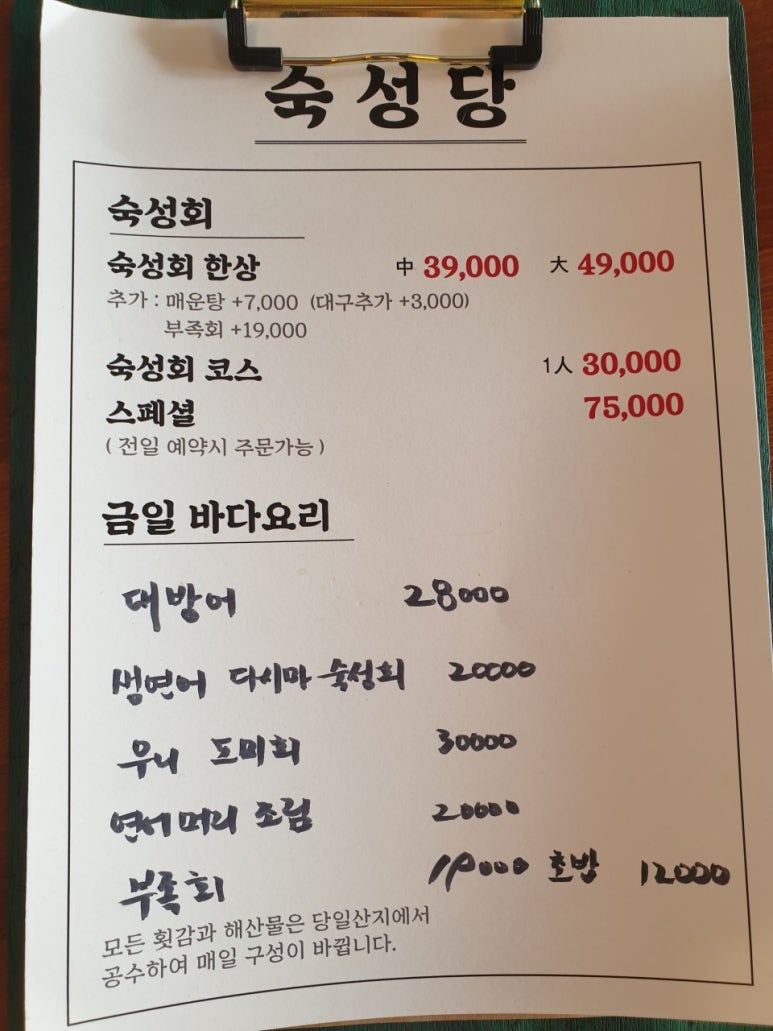 숙성당
숙성회
숙성회 한상 中 39,000 大 49,000
추가 : 매운탕 +7,000 (대구추가 +3,000)
부족회 +19,000
숙성회 코스 1人 30,000
스페셜 75,000
( 전일 예약시 주문가능 )
금일 바다요리
대방어 28000
생연어 다시마 숙성회 20000
우니 도미회 30000
연어머리 조림 20000
부족회 19000 초밥 12000
모든 횟감과 해산물은 당일산지에서
공수하여 매일 구성이 바뀝니다.